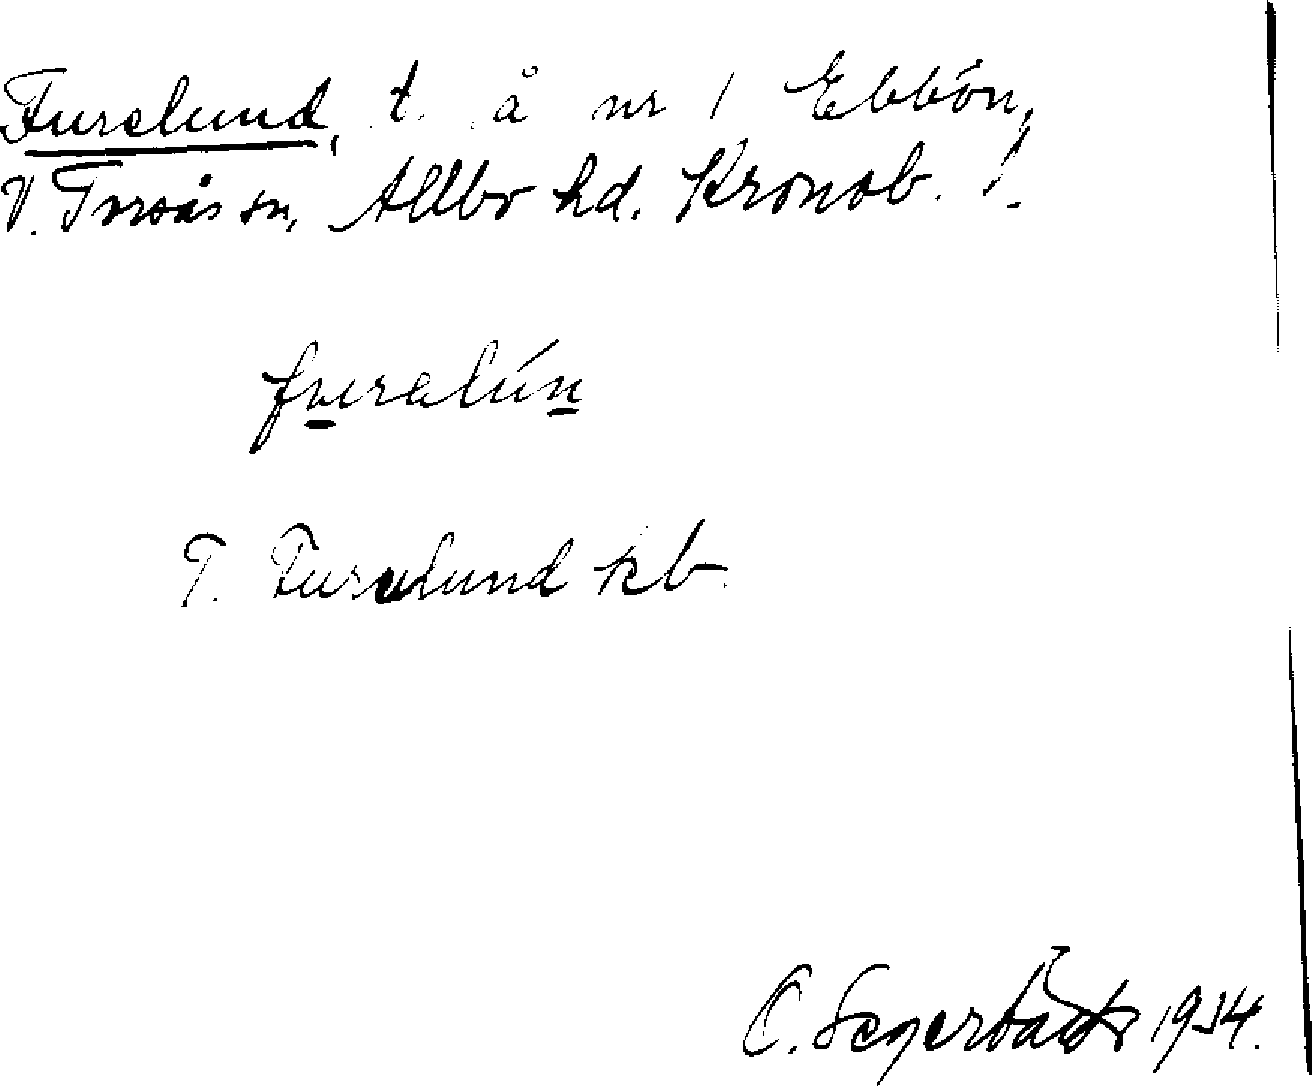 Furelund, t. å nr 1 Ebbön,
V. Torsås sn, Allbo hd. Kronob. l.
furalún
T. Furulund kb.
C. Segerbäck 1934.